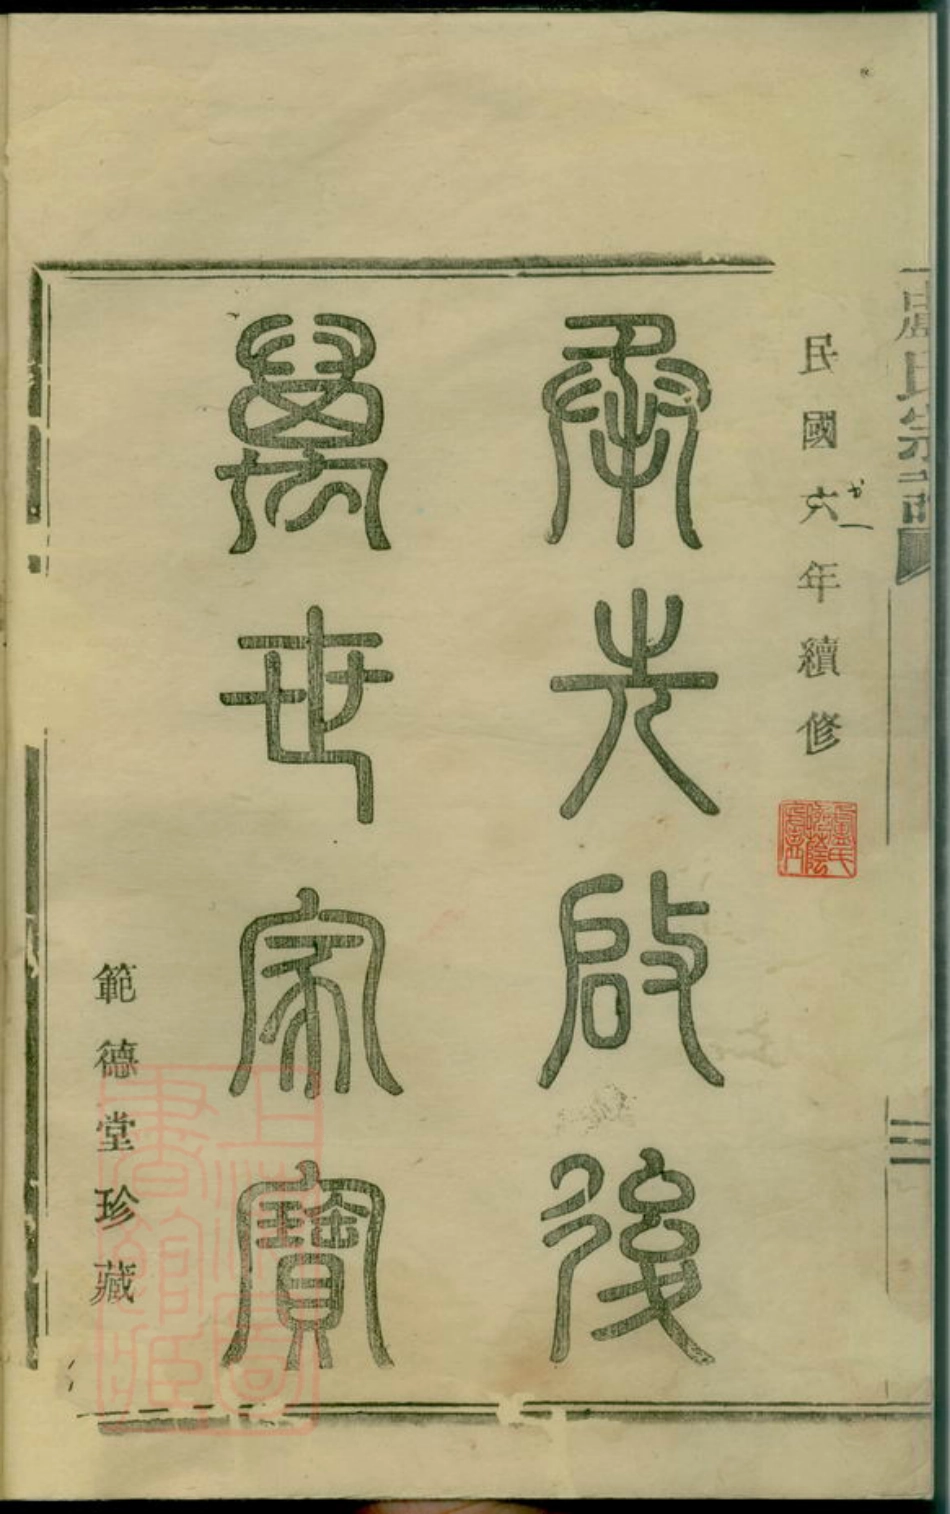 盧氏宗譜
民國六年續修
承先啟後
萬世家寶
範德堂珍藏